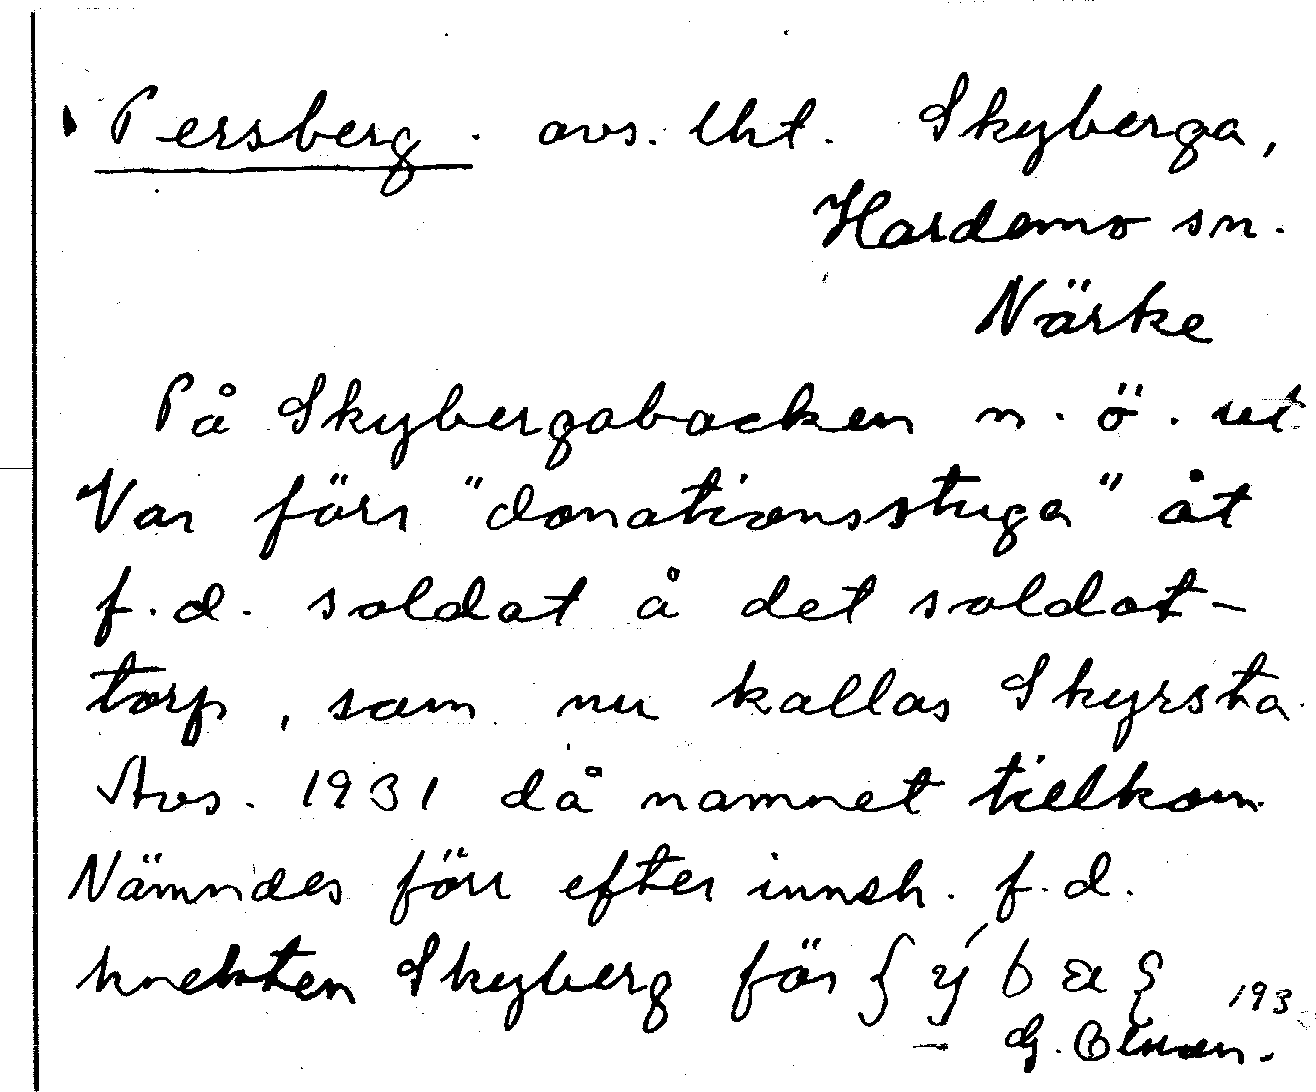 Persberg. avs. lht. Skyberga,
Hardemo sn.
Närke
På Skybergabacken n.ö. ut
Var förr "donationsstuga" åt
f.d. soldat å det soldat-
torp, som nu kallas Skyrsta.
Avs. 1931 då namnet tillkom
Nämndes förr efter inneh. f.d.
knekten Skyberg för
193
G.